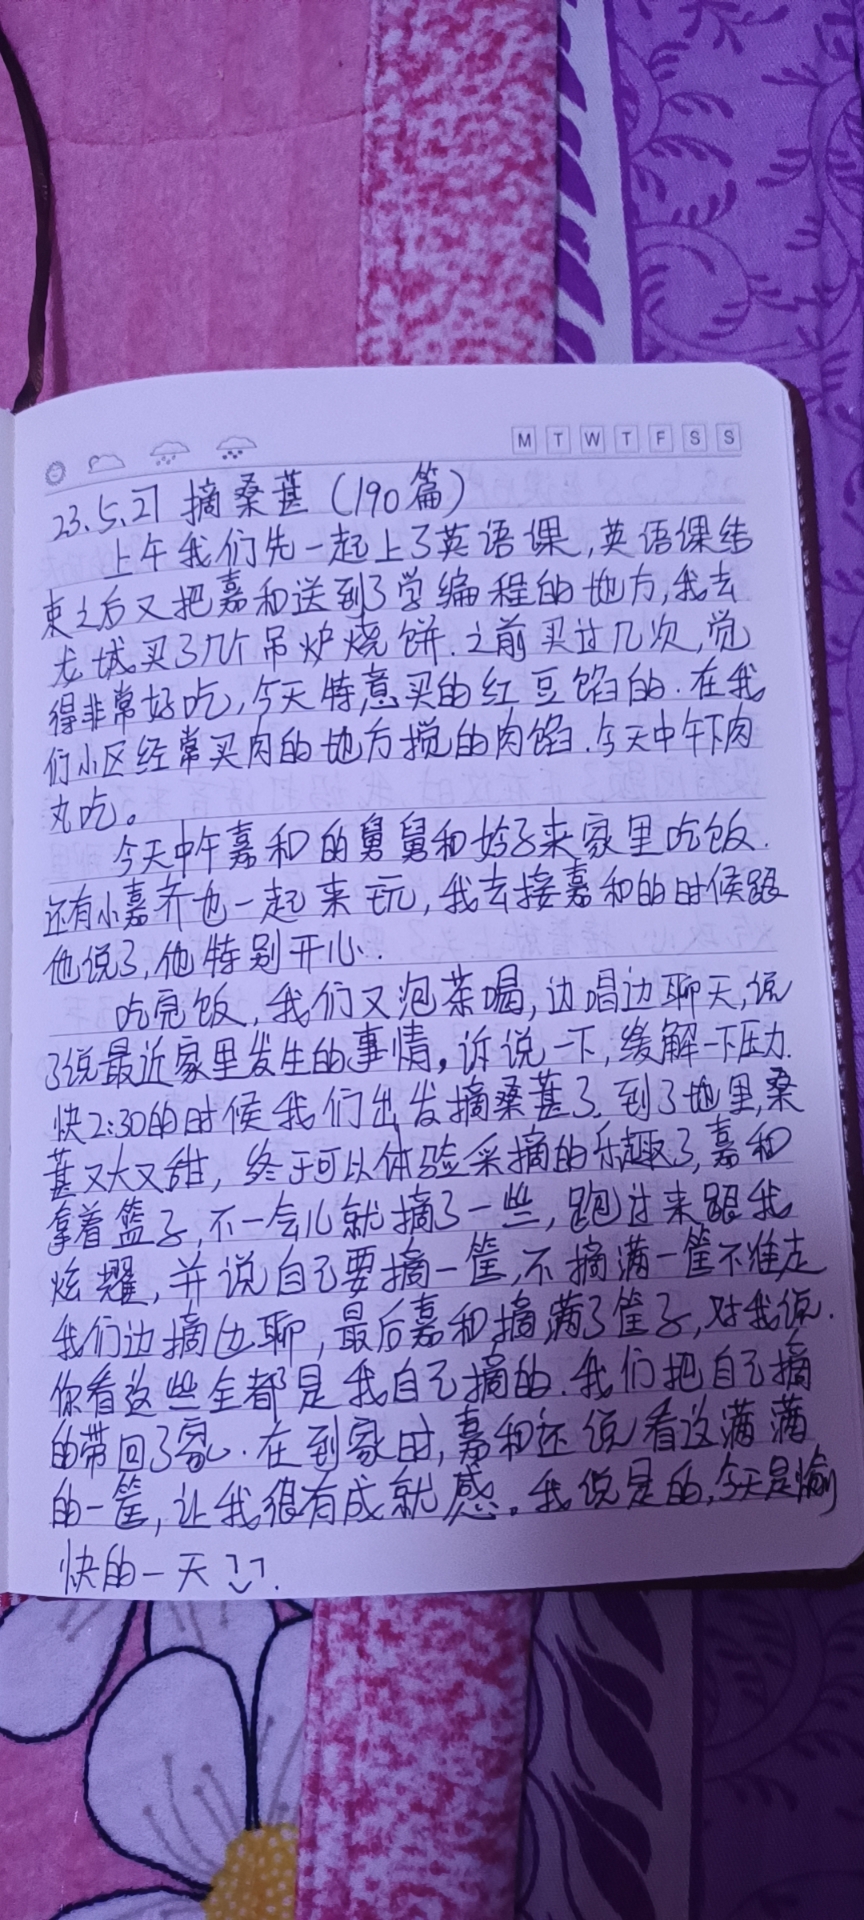 M T W T F S S
23.5.27 摘桑葚（190篇）
上午我们先一起上了英语课,英语课结
束之后又把嘉和送到了学编程的地方,我去
龙城买了几个吊炉烧饼.之前买过几次,觉
得非常好吃,今天特意买的红豆馅的.在我
们小区经常买肉的地方搅的肉馅.今天中午下肉
丸吃。
今天中午嘉和的舅舅和妗子来家里吃饭.
还有小嘉齐也一起来玩,我去接嘉和的时候跟
他说了,他特别开心.
吃完饭,我们又泡茶喝,边喝边聊天,说
了说最近家里发生的事情,诉说一下,缓解一下压力.
快2:30的时候我们出发摘桑葚了.到了地里,桑
葚又大又甜,终于可以体验采摘的乐趣了,嘉和
拿着篮子,不一会儿就摘了一些,跑过来跟我
炫耀,并说自己要摘一筐,不摘满一筐不准走
我们边摘边聊,最后嘉和摘满了筐子,对我说.
你看这些全都是我自己摘的.我们把自己摘
的带回了家.在到家时,嘉和还说看这满满
的一筐,让我很有成就感。我说是的,今天是愉
快的一天